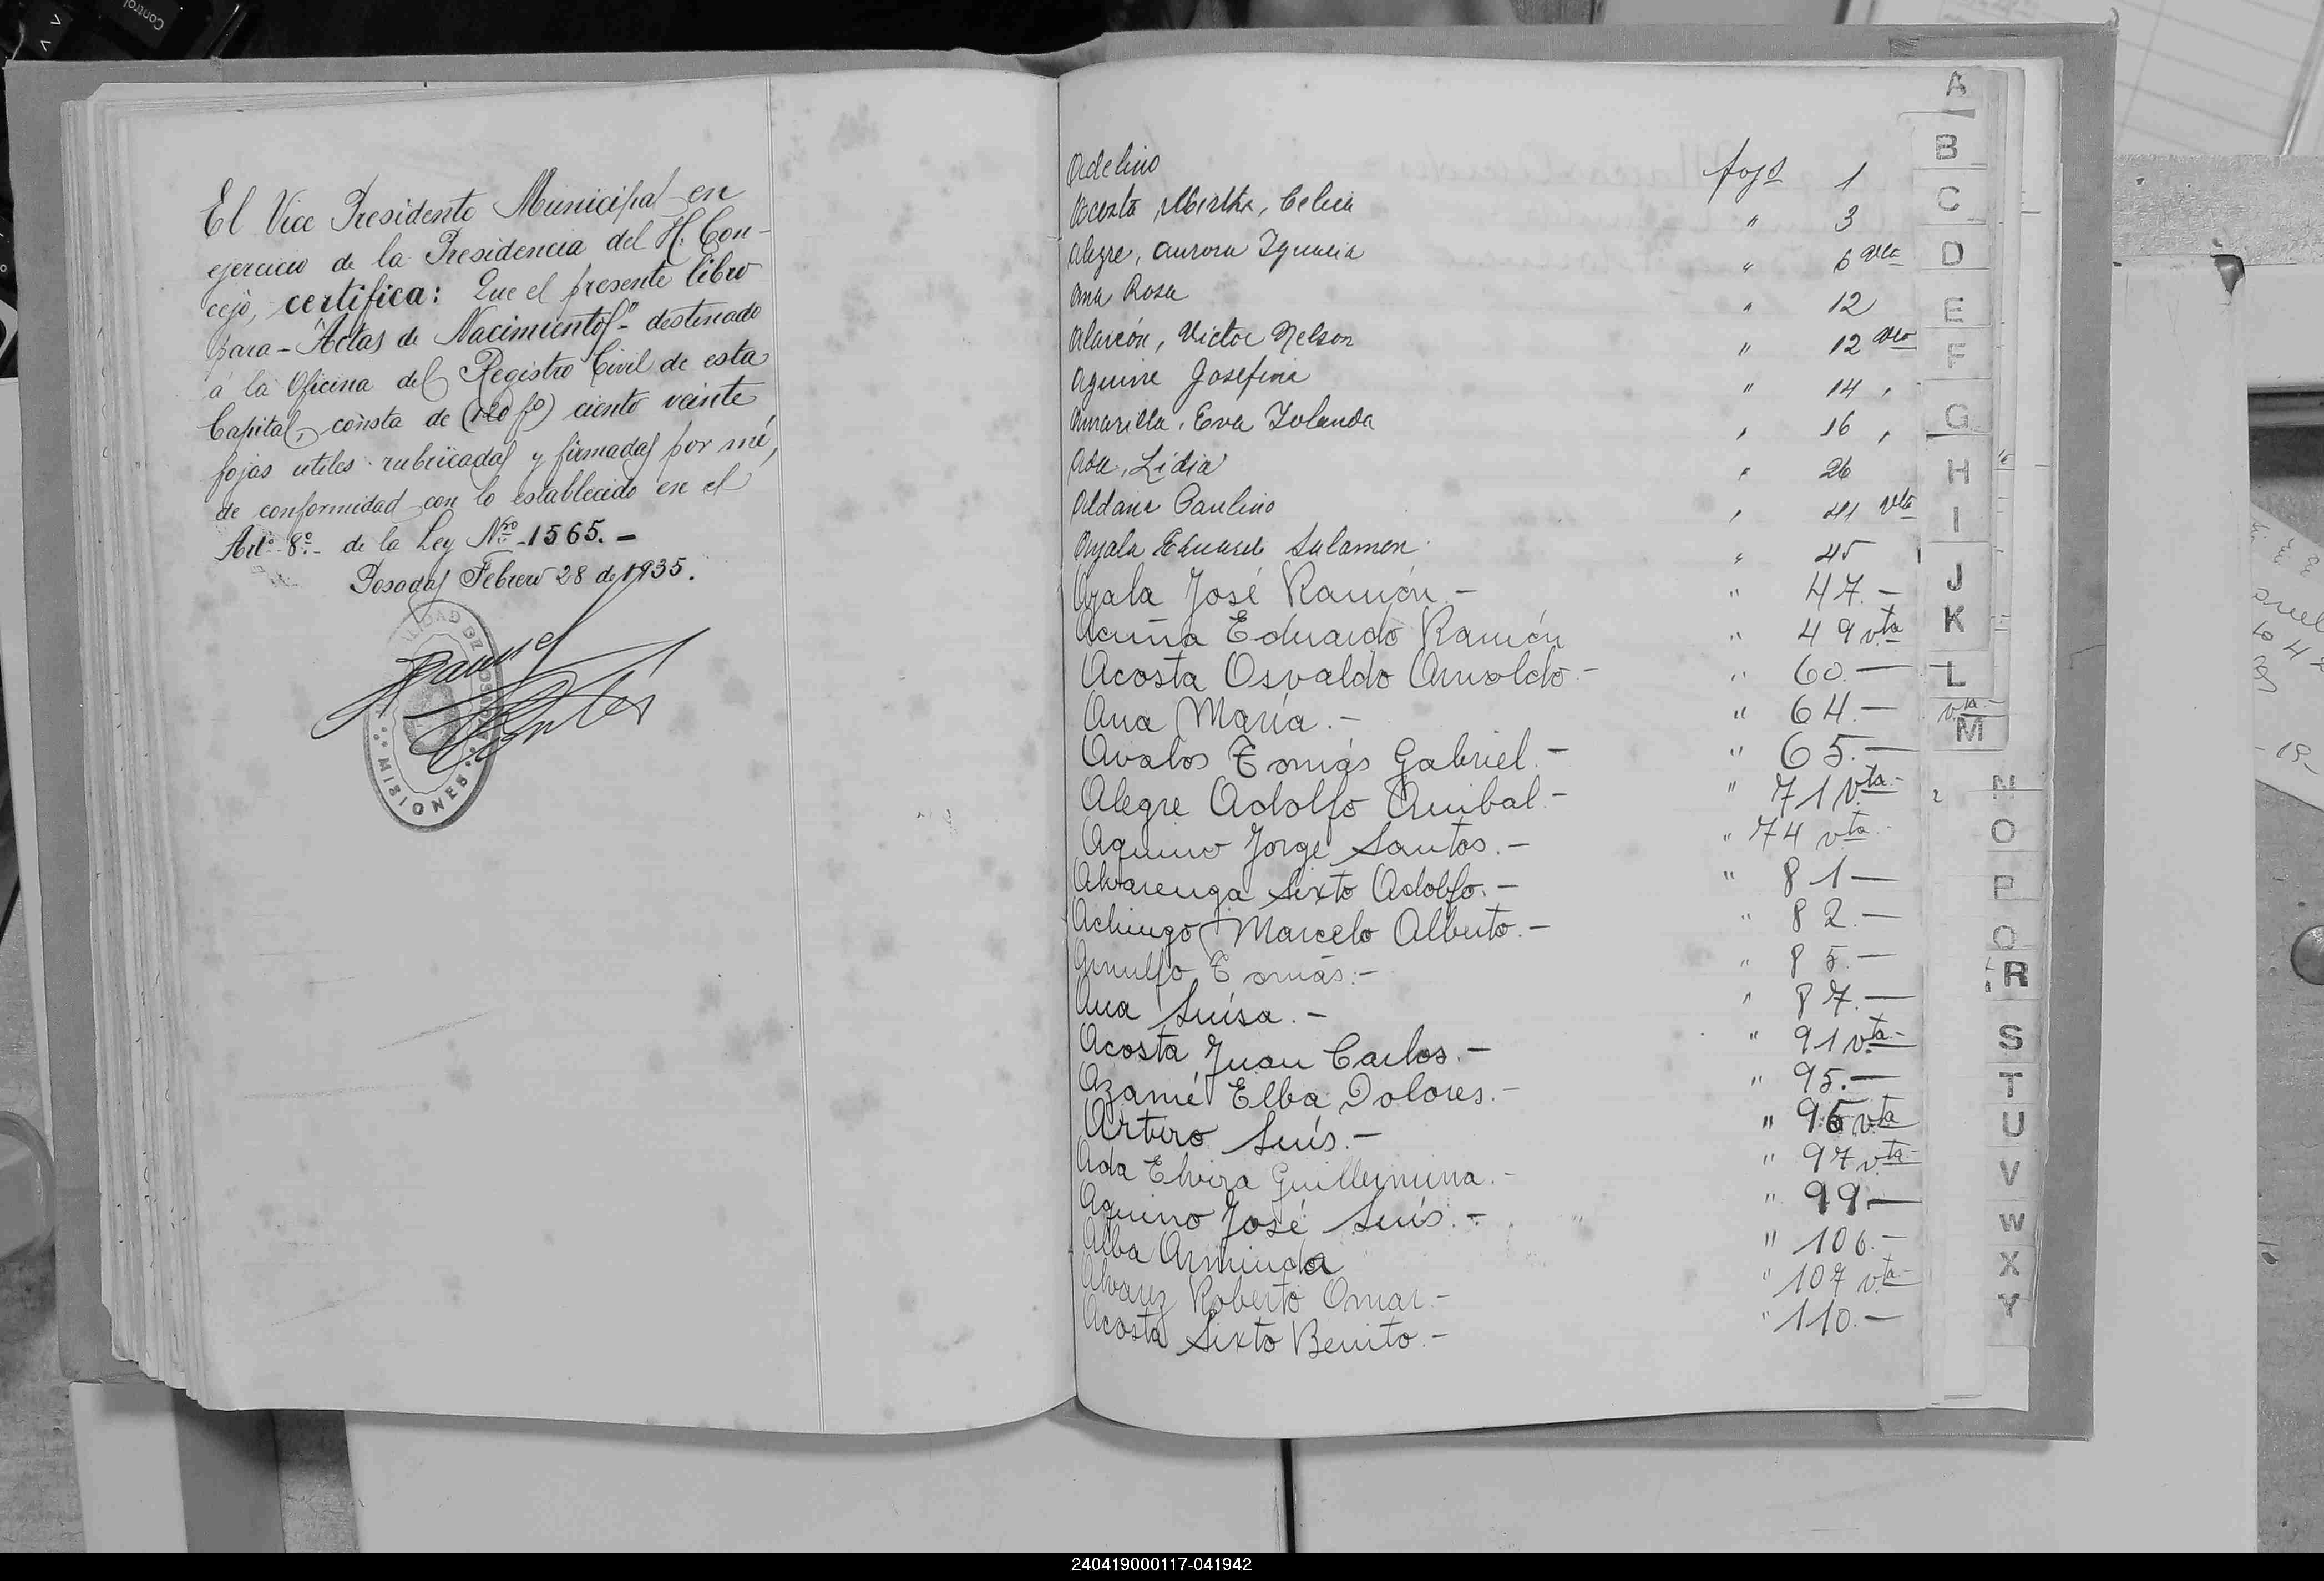 El Vice Presidente Municipal en
ejercicio de la Presidencia del H. Con-
cejo, certifica: Que el presente libro
para - "Actas de Nacimientos" - destinado
á la Oficina del Registro Civil de esta
Capital, consta de (120 fs) ciento veinte
fojas utiles rubricadas y firmadas por mí,
de conformidad con lo establecido en el
Art.º 8º.- de la Ley Nro 1565.-
Posadas Febrero 28 de 1935.
MISIONES
Adelino fojs 1
Acosta, Mirtha, Celia " 3
Alegre, Aurora Ignacia " 6 vta
Ana Rosa " 12
Alarcón, Victor Nelson " 12 vto
Aguirre Josefina " 14 "
Amarilla, Eva Yolanda " 16 "
Ada, Lidia " 26
Aldana Paulino " 41 vta
Ayala Eduardo Salomon " 45
Ayala José Ramón.- " 47.-
Acuña Eduardo Ramón " 49 vta
Acosta Osvaldo Arnoldo.- " 60.-
Ana María.- " 64.- vta.-
Avalos Tomás Gabriel.- " 65.-
Alegre Adolfo Anibal.- " 71 vta.-
Aquino Jorge Santos.- " 74 vta.-
Alvarenga Sixto Adolfo.- " 81-
Achingo Marcelo Alberto.- " 82.-
Arnulfo Tomás.- " 85.-
Ana Luísa.- " 87.-
Acosta Juan Carlos.- " 91 vta.-
Azamé Elba Dolores.- " 95.-
Arturo Luís.- " 96 vta
Ada Elvira Guillermina.- " 97 vta.-
Aquino José Luís.- " 99.-
Alba Arminda " 106.-
Alvarez Roberto Omar.- " 107 vta.-
Acosta Sixto Benito.- " 110.-
A
B
C
D
E
F
G
H
I
J
K
L
M
N
O
P
Q
R
S
T
U
V
W
X
Y
Control
240419000117-041942